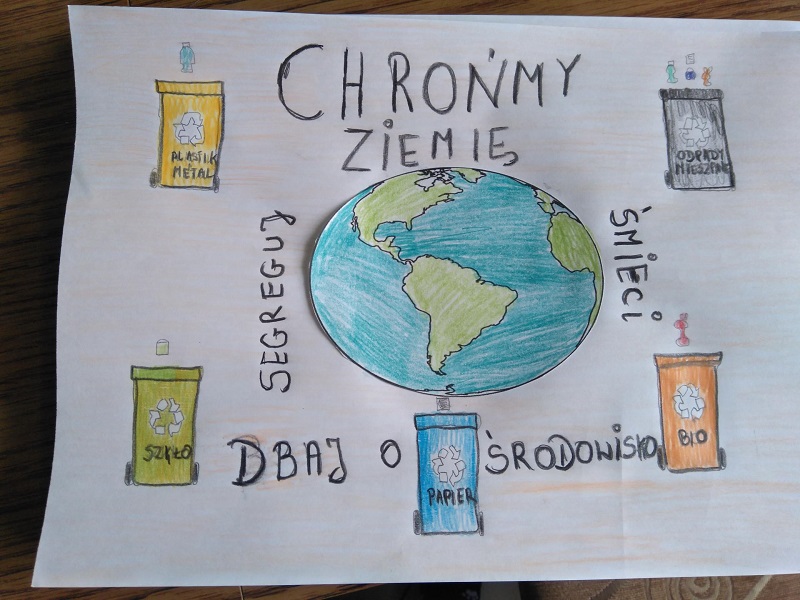 CHROŃMY
ZIEMIĘ
PLASTIK
METAL
ODPADY
MIESZANE
SEGREGUJ
ŚMIECI
SZKŁO
DBAJ O ŚRODOWISKO
PAPIER
BIO